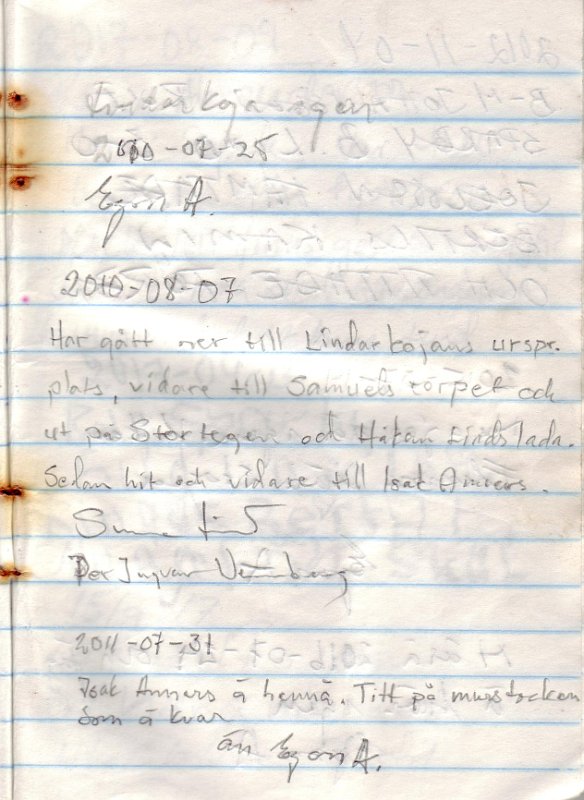 Lindarkojavägen
10-07-25
Egon A.
2010-08-07
Har gått ner till Lindarkojans urspr.
plats, vidare till Samuels torpet och
ut på Stortegen och Håkan Linds lada.
Sedan hit och vidare till Isak Anners.
Sune Lind
Per Ingvar
2011-07-31
Isak Anners å hennä. Titt på murstocken
som ä kvar
än Egon A.